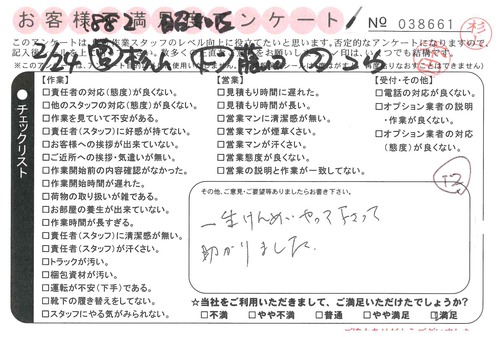 お客様満足度アンケート
882
No 038661
2/24
【作業】
□責任者の対応(態度)が良くない。
□他のスタッフの対応(態度)が良くない。
□作業を見ていて不安がある。
□責任者(スタッフ)に好感が持てない。
□お客様への挨拶が出来ていない。
□ご近所への挨拶・気遣いが無い。
□作業開始前の内容確認がなかった。
□作業開始時間が遅れた。
□荷物の取り扱いが雑である。
□お部屋の養生が出来ていない。
□作業時間が長すぎる。
□責任者(スタッフ)に清潔感が無い。
□責任者(スタッフ)が汗くさい。
□トラックが汚い。
□梱包資材が汚い。
□運転が不安(下手)である。
□靴下の履き替えをしてない。
□スタッフにやる気がみられない。
【営業】
□見積もり時間に遅れた。
□見積もり時間が長い。
□営業マンに清潔感が無い。
□営業マンが煙草くさい。
□営業マンが汗くさい。
□営業態度が良くない。
□営業の説明と作業が一致してない。
【受付・その他】
□電話の対応が良くない。
□オプション業者の説明
・作業が良くない。
□オプション業者の対応
(態度)が良くない。
チェックリスト
その他、ご意見・ご要望等ありましたらお書き下さい。
一生けんめいやって下さって
助かりました。
☆当社をご利用いただきまして、ご満足いただけたでしょうか?
□不満 □やや不満 □普通 □やや満足 □満足